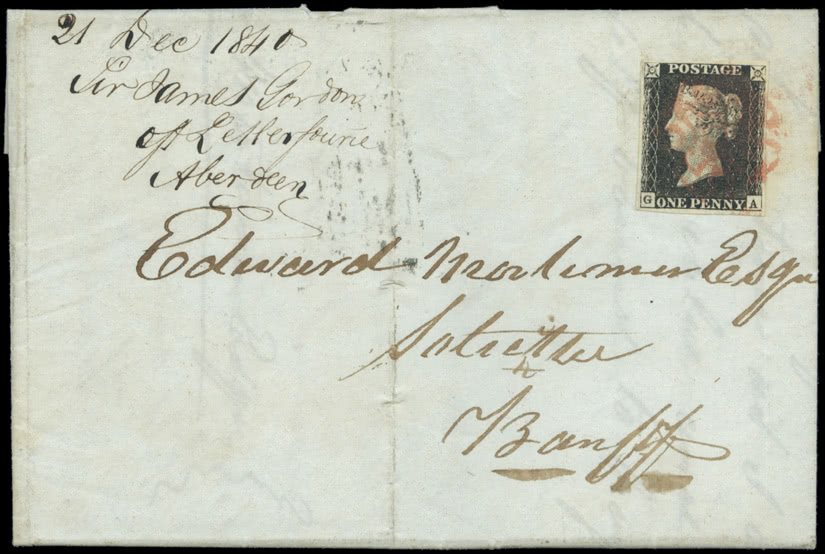 21 Dec 1840
Sir James Gordon
of Letterfourie
Aberdeen
POSTAGE
G A
ONE PENNY
Edward Mortimer Esqr
Solicitor
Banff